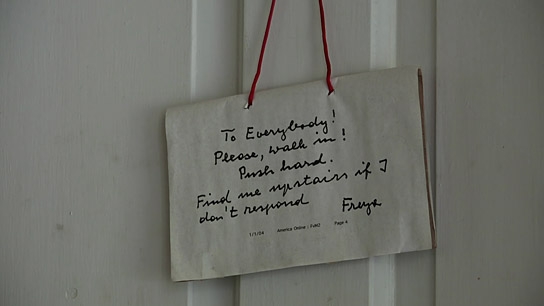 To Everybody!
Please, walk in!
Push hard.
Find me upstairs if I
don't respond
Freya
1/1/04 America Online : FJM2 Page 4